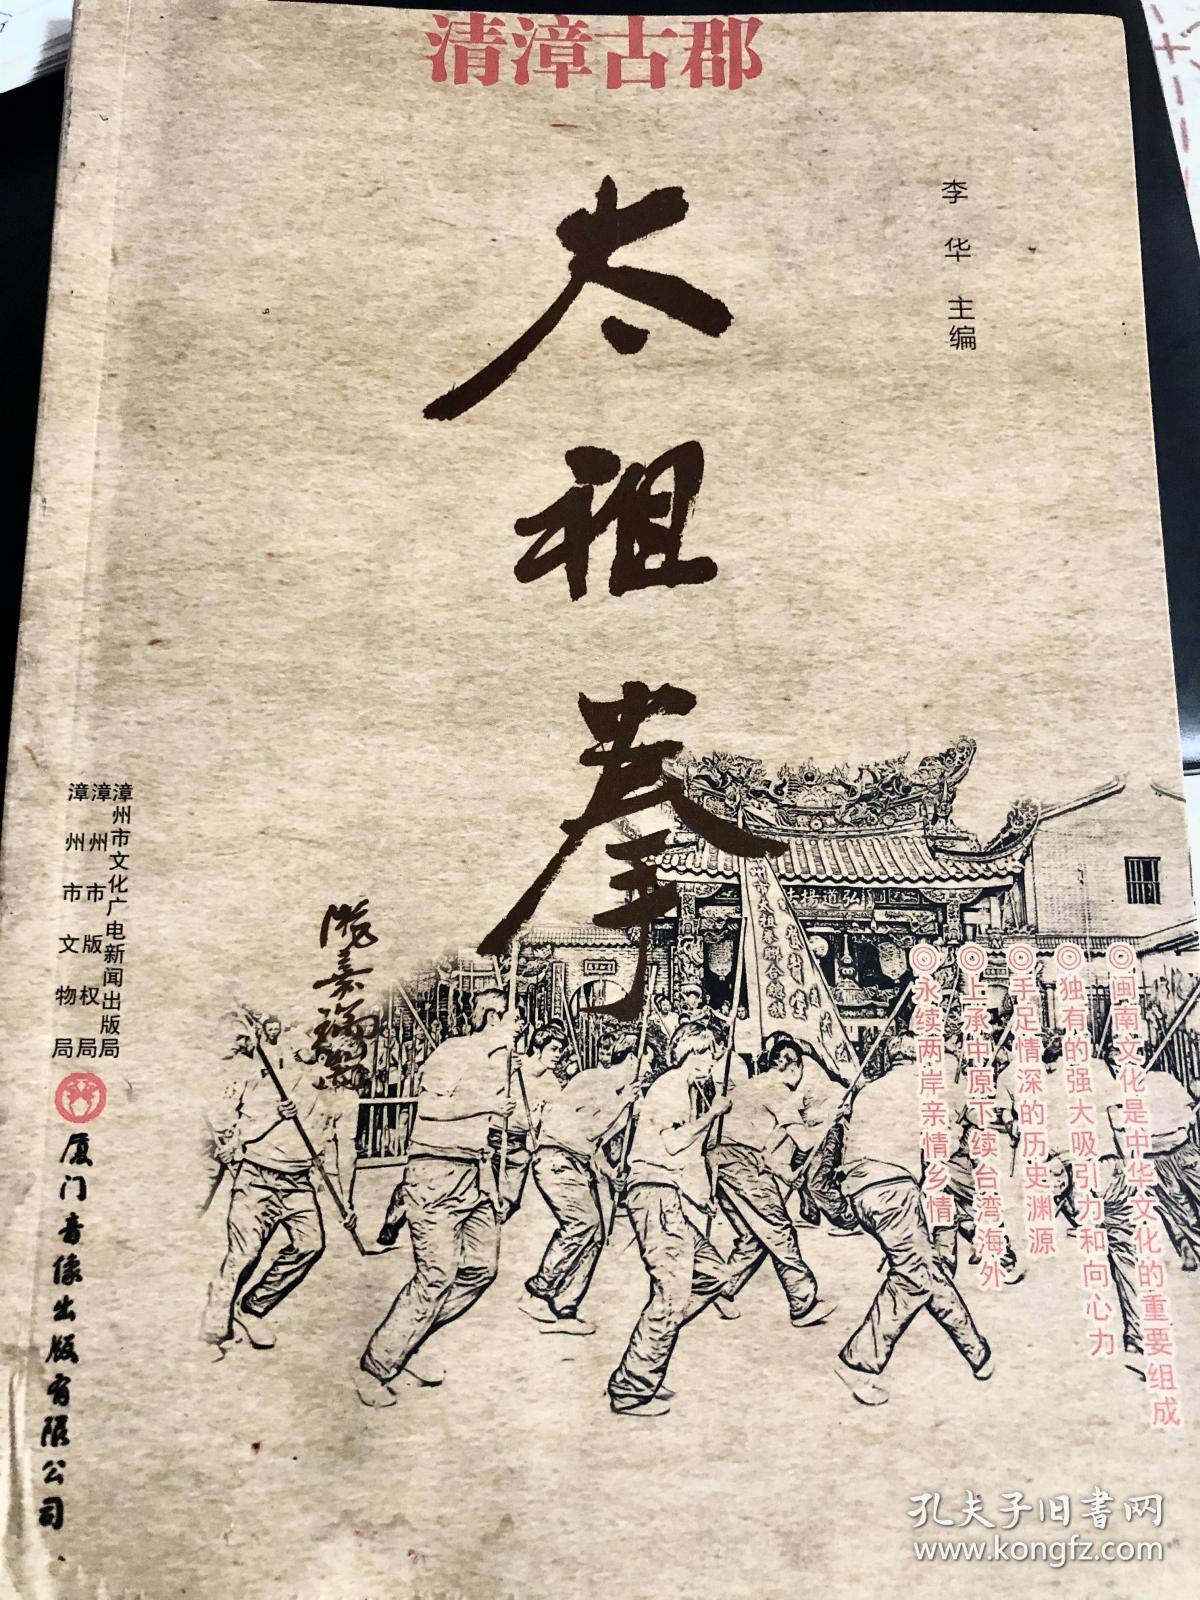 清漳古郡
太祖拳
李华 主编
闽南文化是中华文化的重要组成
独有的强大吸引力和向心力
手足情深的历史渊源
上承中原下续台湾海外
永续两岸亲情乡情
弘道揚法
州市太祖拳聯合總館
漳州市文化广电新闻出版局
漳州市版权局
漳州市文物局
厦门音像出版有限公司
孔夫子旧书网
www.kongfz.com